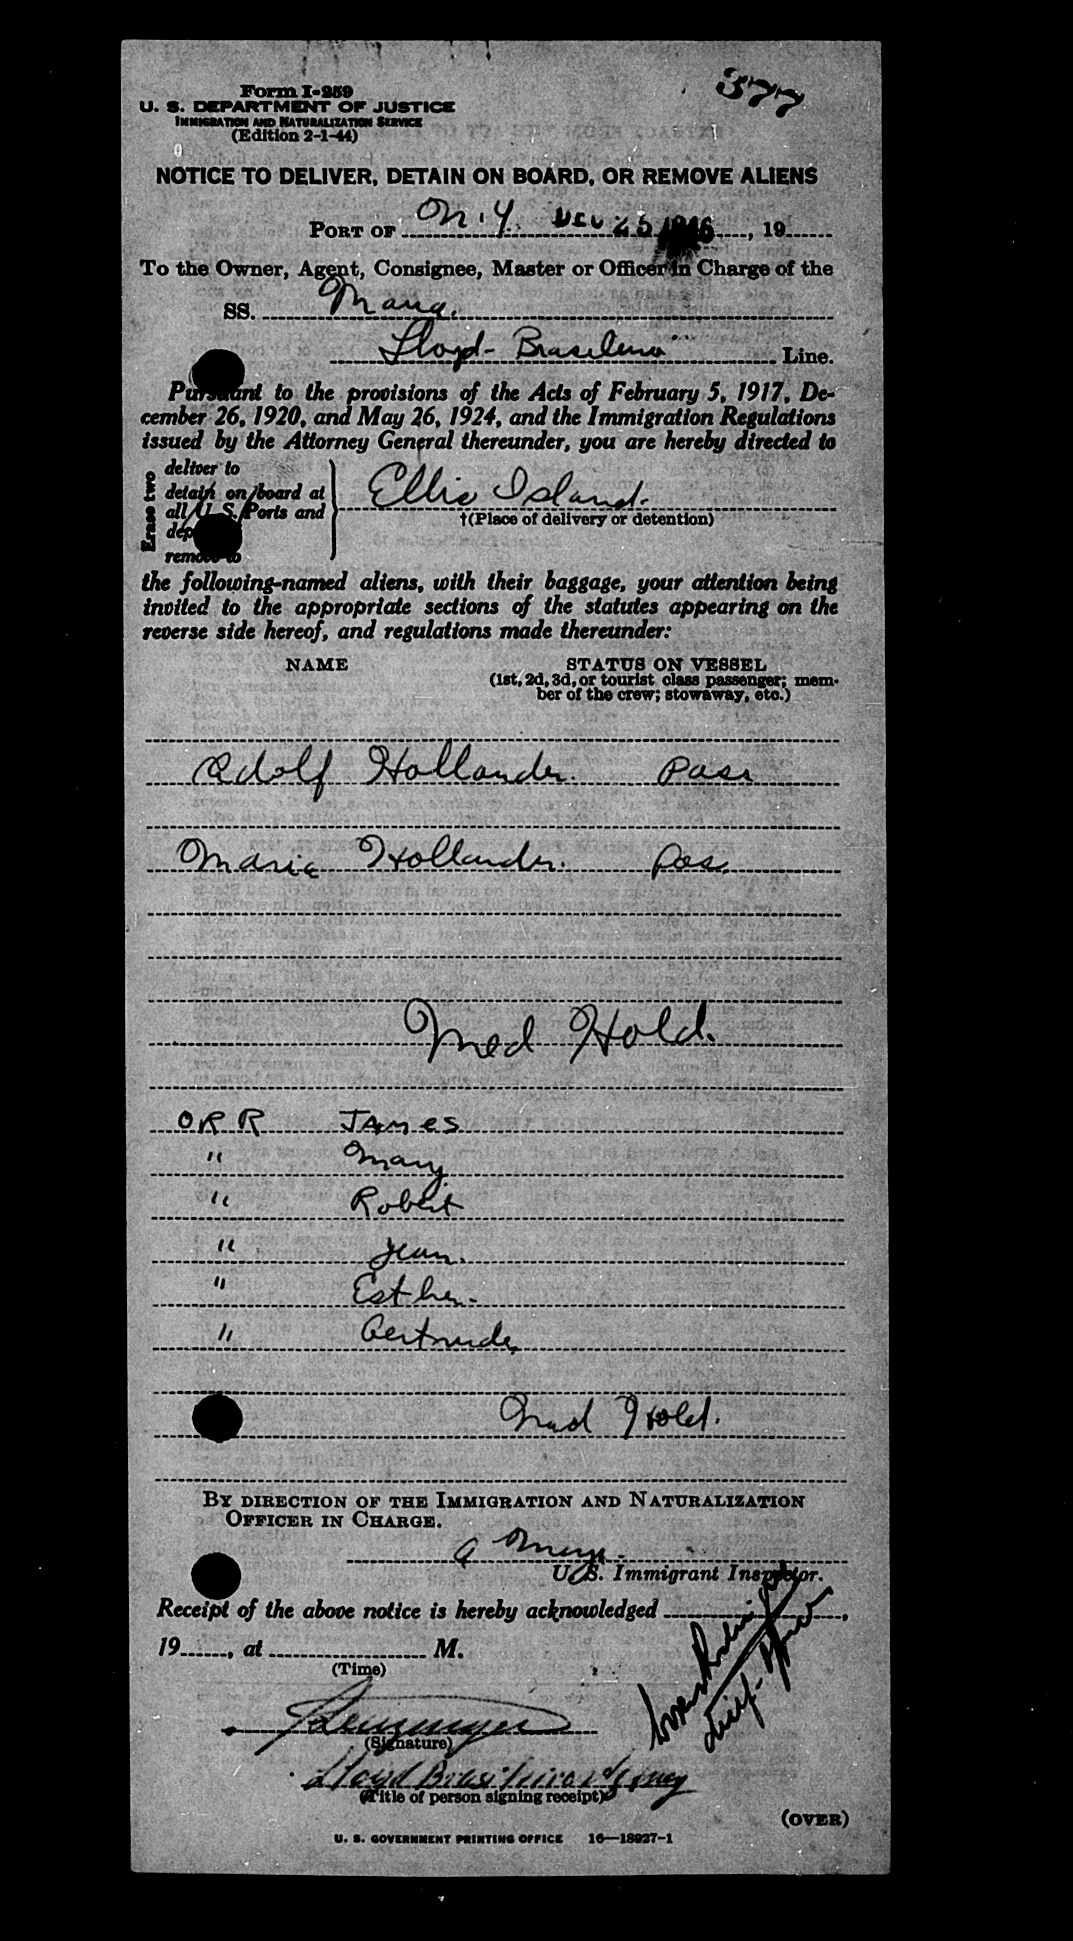 377
Form I-259
U. S. DEPARTMENT OF JUSTICE
IMMIGRATION AND NATURALIZATION SERVICE
(Edition 2-1-44)
NOTICE TO DELIVER, DETAIN ON BOARD, OR REMOVE ALIENS
PORT OF N.Y. DEC 25 1946, 19
To the Owner, Agent, Consignee, Master or Officer in Charge of the
SS.
Lloyd-Brasileiro Line.
Pursuant to the provisions of the Acts of February 5, 1917, De-
cember 26, 1920, and May 26, 1924, and the Immigration Regulations
issued by the Attorney General thereunder, you are hereby directed to
Erase two
deliver to
detain on board at
all U. S. Ports and
remove to
Ellis Island.
†(Place of delivery or detention)
the following-named aliens, with their baggage, your attention being
invited to the appropriate sections of the statutes appearing on the
reverse side hereof, and regulations made thereunder:
NAME STATUS ON VESSEL
(1st, 2d, 3d, or tourist class passenger; mem-
ber of the crew; stowaway, etc.)
Adolf Hollander. Pass
Marie Hollander. Pass.
Med Hold.
ORR JAMES
" Mary
" Robert
" Jean.
" Esther.
" Gertrude
Med Hold.
BY DIRECTION OF THE IMMIGRATION AND NATURALIZATION
OFFICER IN CHARGE.
U. S. Immigrant Inspector.
Receipt of the above notice is hereby acknowledged ,
19 , at M.
(Time)
(Signature)
Lloyd Brasileiro Agency
(Title of person signing receipt)
(OVER)
U. S. GOVERNMENT PRINTING OFFICE 16—18927-1